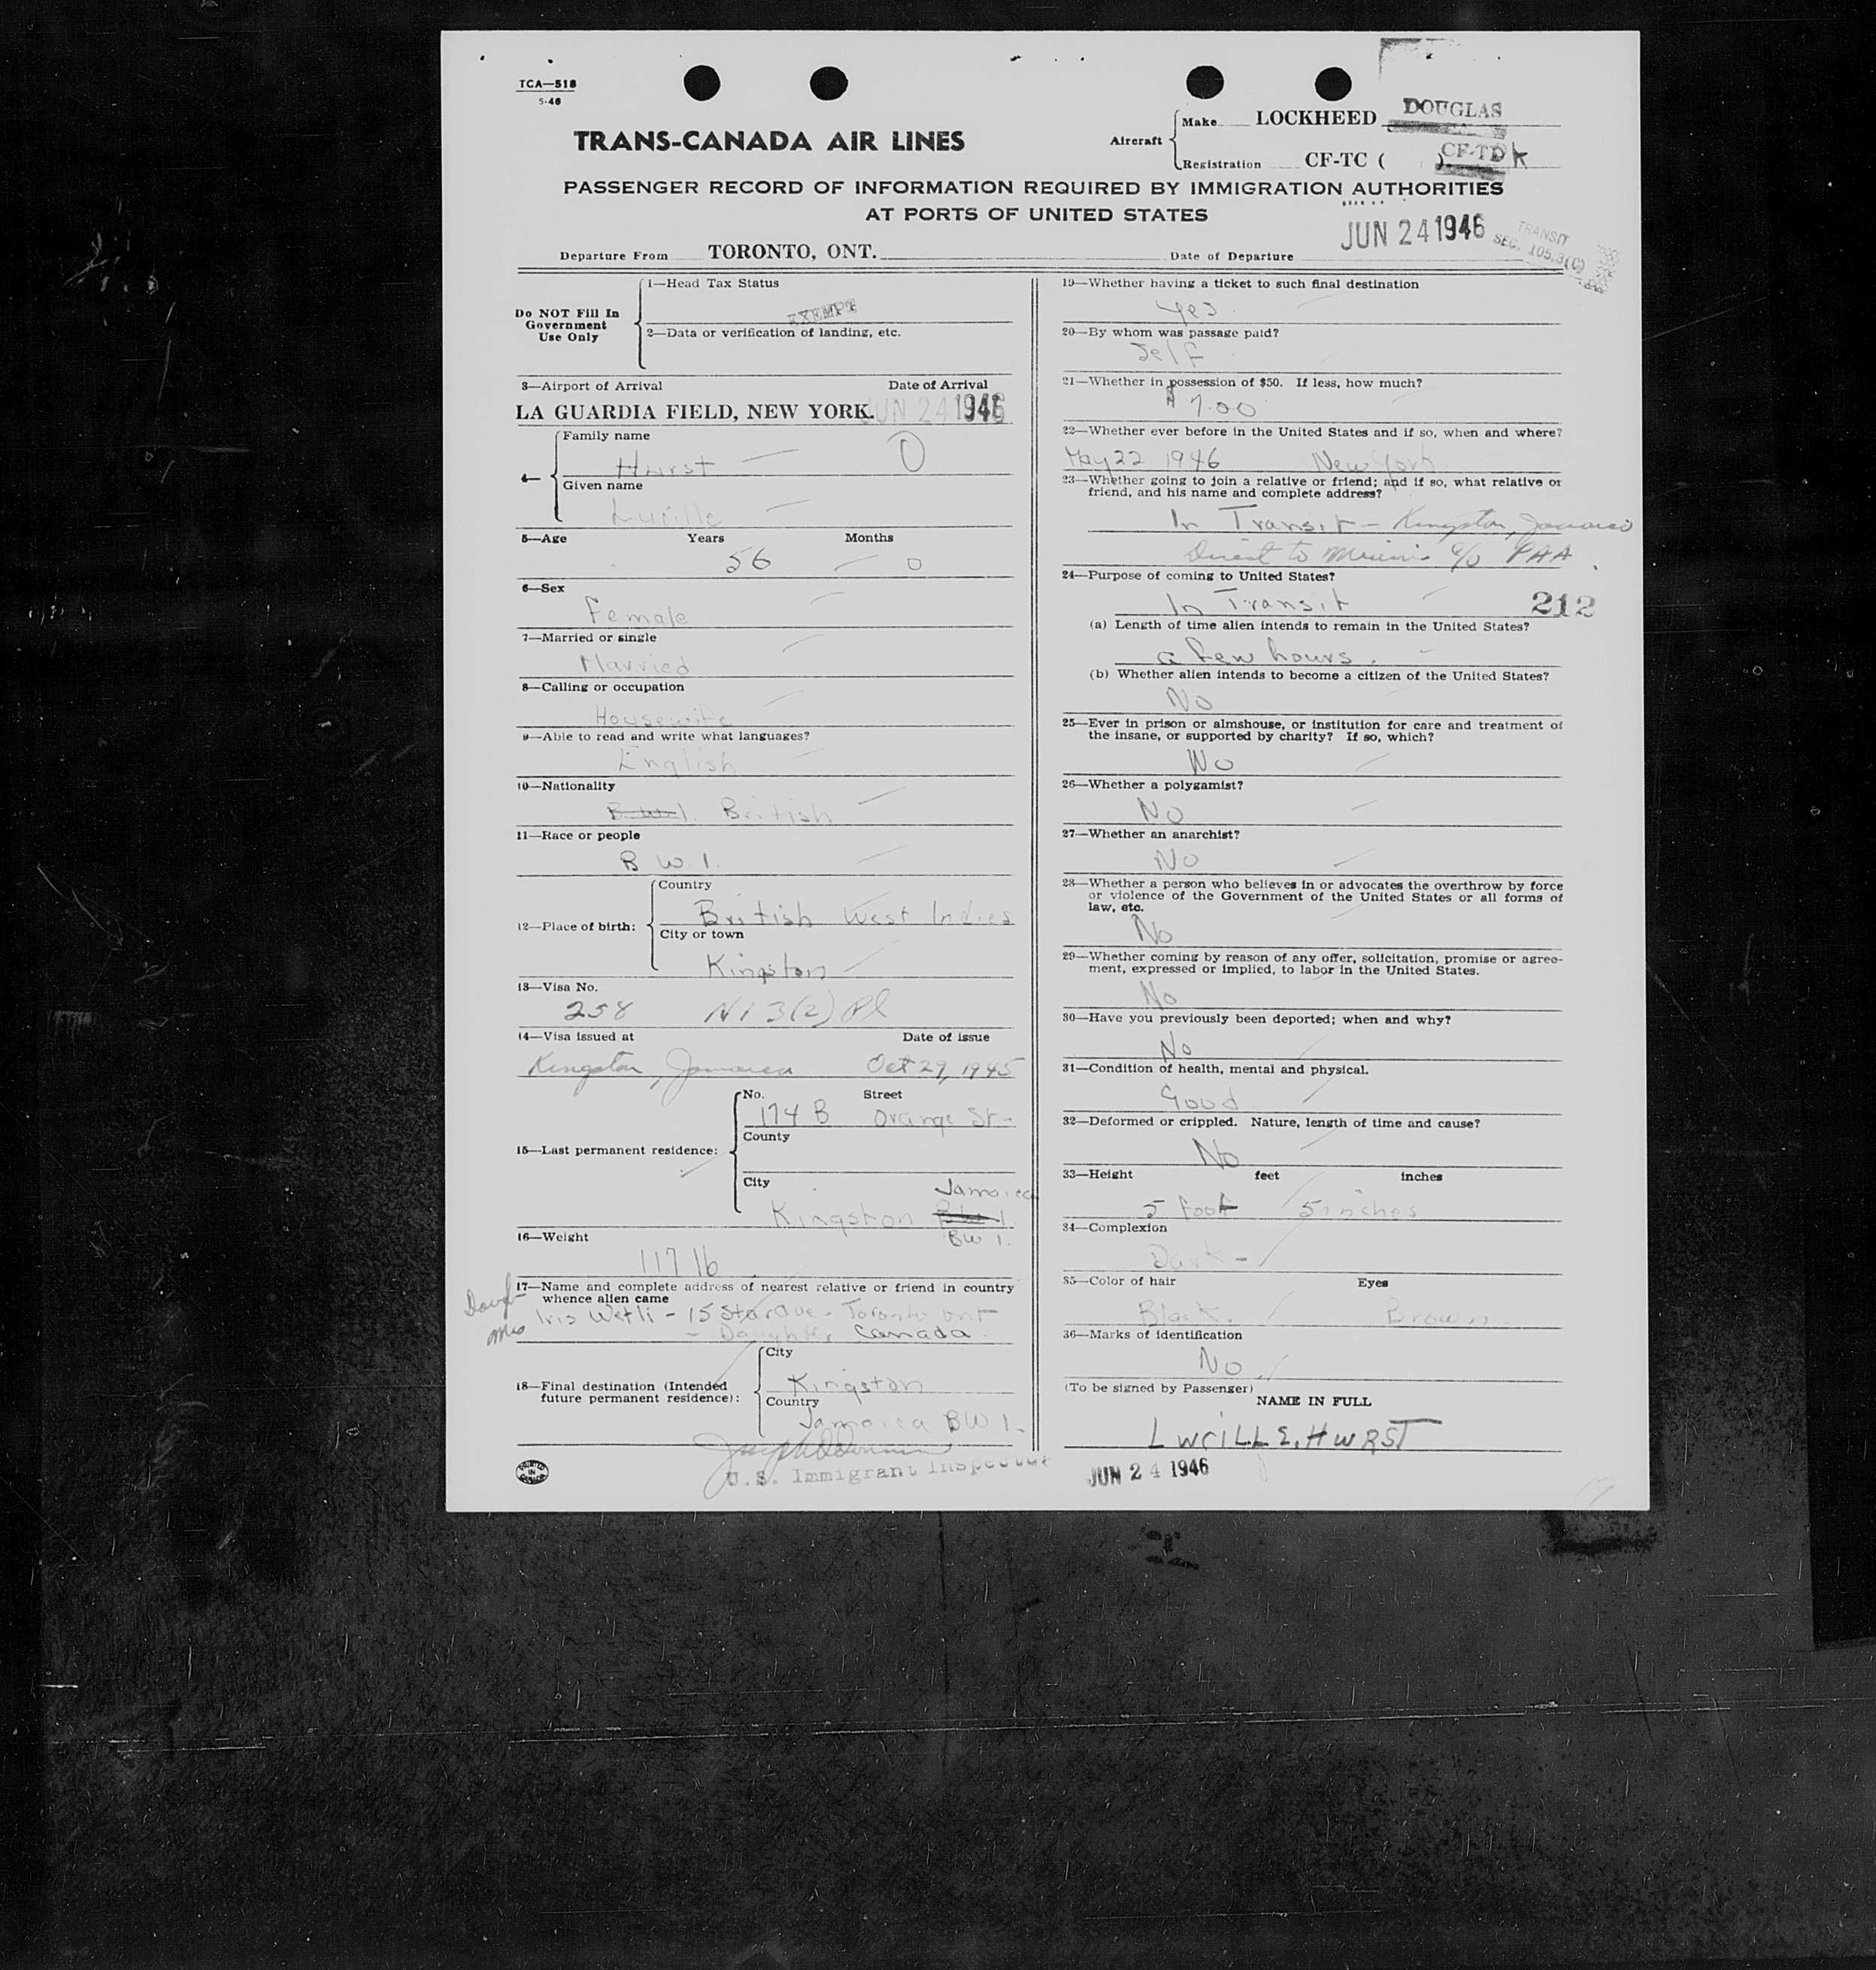 TCA—518
5-46
TRANS-CANADA AIR LINES
Aircraft
Make LOCKHEED DOUGLAS
Registration CF-TC ( ) CF-TD K
PASSENGER RECORD OF INFORMATION REQUIRED BY IMMIGRATION AUTHORITIES
AT PORTS OF UNITED STATES
JUN 24 1946
TRANSIT
SEC. 105.3(C)
Departure From TORONTO, ONT. Date of Departure
Do NOT Fill In
Government
Use Only
1—Head Tax Status
EXEMPT
2—Data or verification of landing, etc.
3—Airport of Arrival Date of Arrival
LA GUARDIA FIELD, NEW YORK. JUN 24 1946
4—
Family name
Hurst — 0
Given name
Lucille —
5—Age Years Months
56 — 0
6—Sex
Female
7—Married or single
Married
8—Calling or occupation
Housewife
9—Able to read and write what languages?
English
10—Nationality
B.W.I. British
11—Race or people
B W. I.
12—Place of birth:
Country
British West Indies
City or town
Kingston
13—Visa No.
258 NI 3(2) Pl
14—Visa issued at Date of issue
Kingston, Jamaica Oct 29, 1945
15—Last permanent residence:
No. Street
174 B Orange St-
County
City
Jamaica
Kingston B.W.I.
BW I.
16—Weight
117 lb
17—Name and complete address of nearest relative or friend in country
whence alien came
Iris Wetli - 15 Star ave - Toronto ont
Mrs
- Daughter Canada
18—Final destination (Intended
future permanent residence):
City
Kingston
Country
Jamaica BW I.
U.S. Immigrant Inspector
PRINTED
IN
CANADA
19—Whether having a ticket to such final destination
Yes
20—By whom was passage paid?
Self
21—Whether in possession of $50. If less, how much?
$ 7.00
22—Whether ever before in the United States and if so, when and where?
May 22 1946 New York
23—Whether going to join a relative or friend; and if so, what relative or
friend, and his name and complete address?
In Transit - Kingston, Jamaica
Direct to Miami c/o PAA
24—Purpose of coming to United States?
In Transit 212
(a) Length of time alien intends to remain in the United States?
a few hours.
(b) Whether alien intends to become a citizen of the United States?
No
25—Ever in prison or almshouse, or institution for care and treatment of
the insane, or supported by charity? If so, which?
No
26—Whether a polygamist?
No
27—Whether an anarchist?
No
28—Whether a person who believes in or advocates the overthrow by force
or violence of the Government of the United States or all forms of
law, etc.
No
29—Whether coming by reason of any offer, solicitation, promise or agree-
ment, expressed or implied, to labor in the United States.
No
30—Have you previously been deported; when and why?
No
31—Condition of health, mental and physical.
Good
32—Deformed or crippled. Nature, length of time and cause?
No
33—Height feet inches
5 foot 5 inches
34—Complexion
Dark -
35—Color of hair Eyes
Black. Brown
36—Marks of identification
No.
(To be signed by Passenger)
NAME IN FULL
LUCILLE. HURST
JUN 24 1946